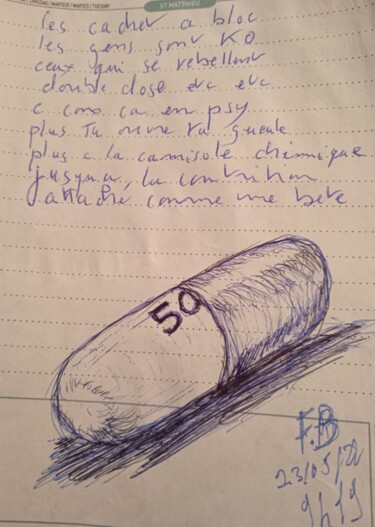 MARTEDI / MARTES / TUESDAY
ST MATTHIEU
les cachet a bloc
les gens sont KO
ceux qui se rebellent
double dose etc etc
c comx ca en psy
plus tu ouvre ta gueule
plus c la camisole chimique
jusqu'a, la contention
attaché comme une bete
50
F.B
23/05/22
9h19